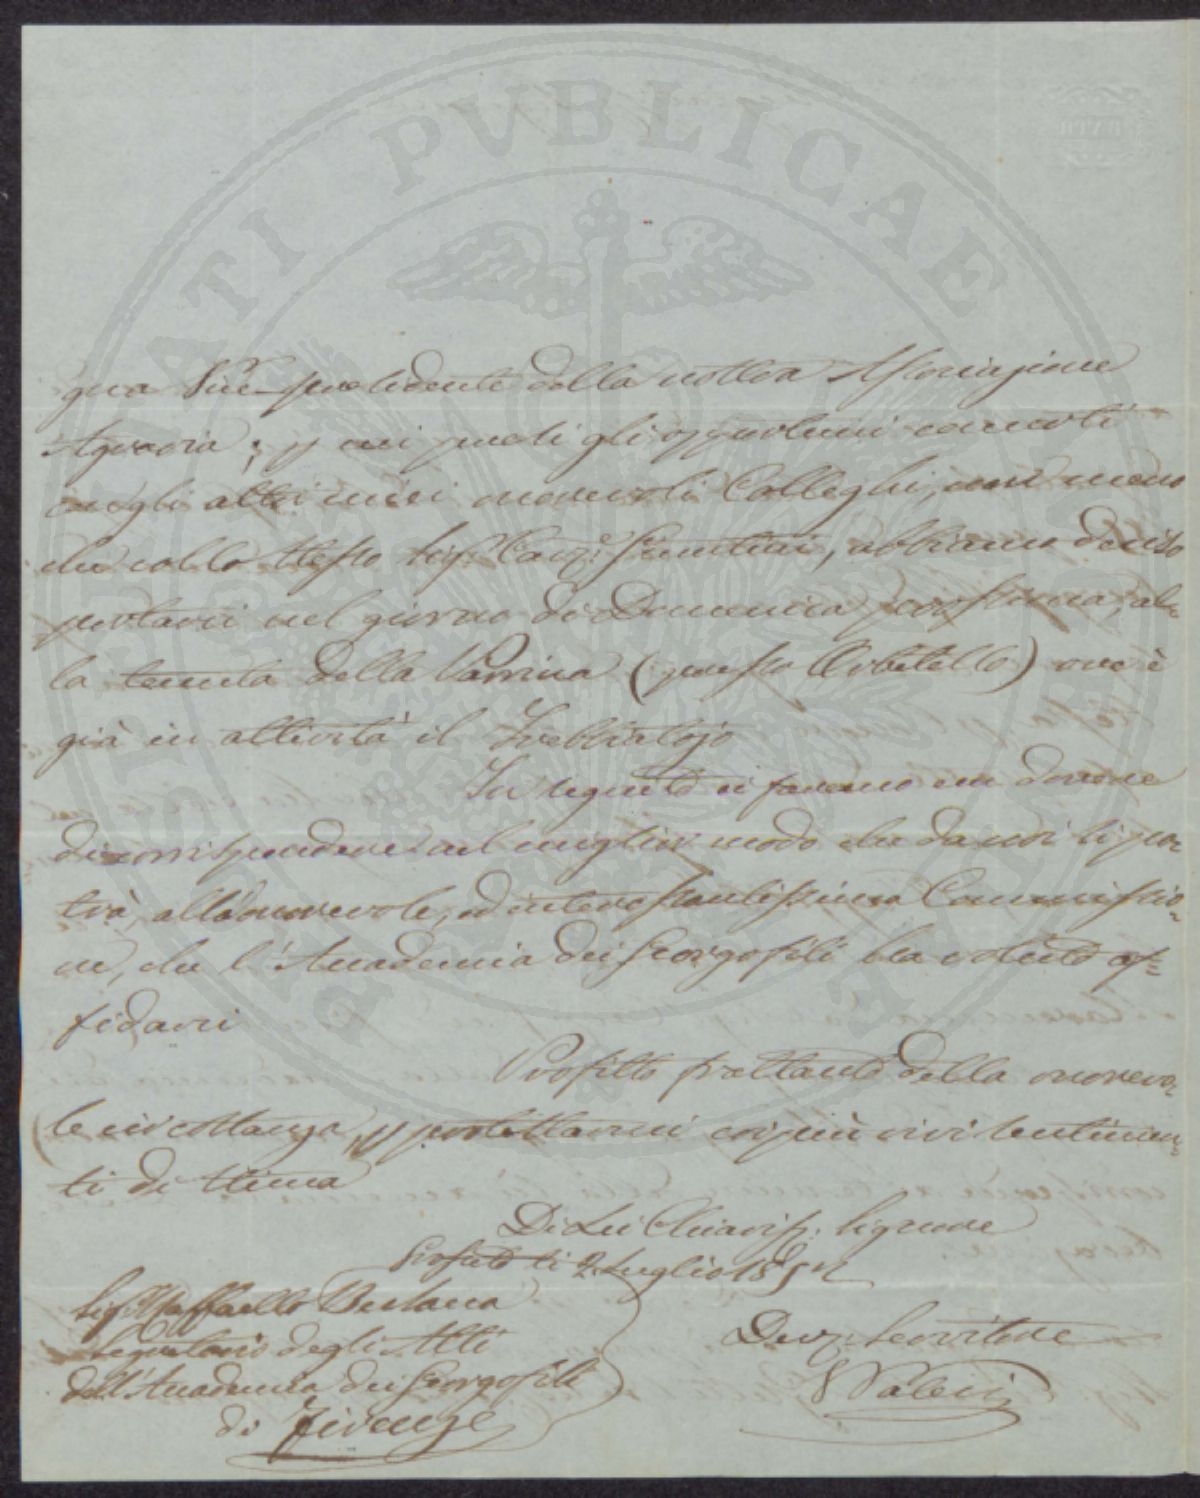 PROSPERITATI PUBLICAE
BATH
qua Vice-presidente della nostra Associazione
Agraria; e presi gli opportuni concerti
cogli altri miei onorevoli Colleghi, non meno
che collo stesso Sig. Canz.e abbiamo deciso
portarci nel giorno di Domenica prossima, al-
la tenuta della Parrina (presso Orbetello) ove è
già in attività il Trebbiatojo
In seguito ci faremo un dovere
di corrispondere nel miglior modo che da noi si po-
trà, all'onorevole, ed interessantissima Commissio-
ne, che l'Accademia dei Georgofili ha voluto af-
fidarci
Profitto frattanto della onorevo-
le circostanza, p protestarmi coi più vivi sentimen-
ti di stima
Di Lei Chiariss. Signore
Grosseto li 2 Luglio 1857
Sig. Raffaello Busacca
Segretario degli Atti
dell'Accademia dei Georgofili
di Firenze
Devo. Servitore